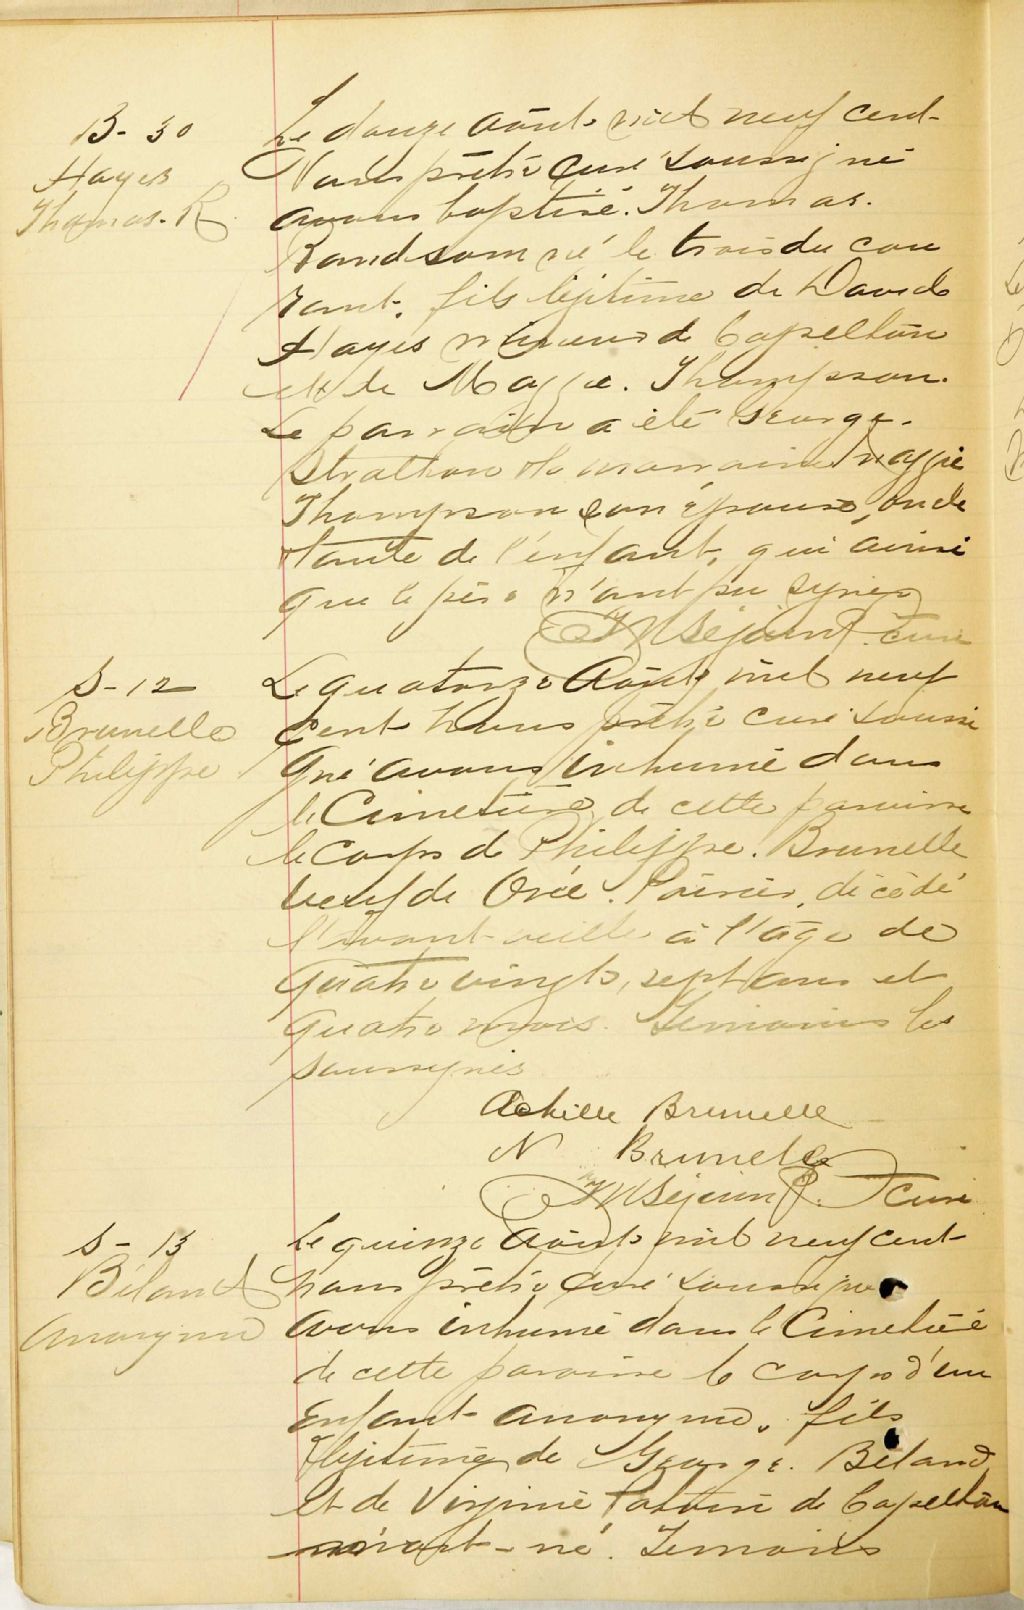 B- 30
Hayes
Thomas. R.
Le douze Août mil neuf cent
Nous prêtre curé soussigné
avons baptisé. Thomas.
Randsom né le trois du cou
rant. fils légitime de David
Hayes mineur de Capelton
et de Maggie. Thompson.
Le parrain a été George.
Stratton la marraine Maggie
Thompson son épouse, oncle
tante de l'enfant, qui ainsi
que le père n'ont pu signer
curé
S-12
Brunelle
Philippe
Le quatorze Août mil neuf
cent Nous prêtre curé soussi
gné avons inhumé dans
le Cimetière de cette paroisse
le corps de Philippe. Brunelle
veuf de Poirier, décédé
l'avant-veille à l'âge de
quatre vingts, sept ans et
quatre mois. Témoins les
soussignés
Achille Brunelle
N Brunelle
curé
S- 13
Béland
Anonyme
Le quinze Août mil neuf cent
nous prêtre curé soussigné
avons inhumé dans le Cimetière
de cette paroisse le corps d'un
Enfant anonyme, fils
légitime de George. Béland
et de Virginie de Capelton
mort-né. Témoins